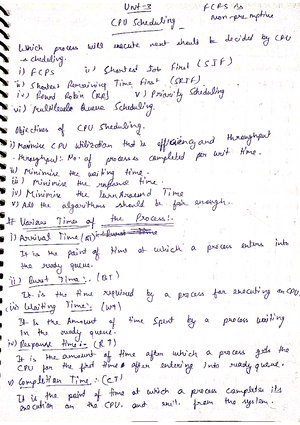 Unit-3
FCFS is
non-premptive
CPU Scheduling
Which process will execute next should be decided by CPU
scheduling.
i) FCFS ii) Shortest Job First (SJF)
iii) Shortest Remaining Time First (SRTF)
iv) Round Robin (RR) v) Priority Scheduling
vi) Multilevel Queue Scheduling.
Objectives of CPU Sheduling.
i) Maximize CPU utilization that is efficiency and throughput
Throughput: No. of processes completed per unit time.
ii) Minimise the waiting time.
iii) Minimise the response time.
iv) Minimise the turn Around Time
v) All the algorithms should be fair enough.
# Various Times of the Process:-
i) Arrival Time (AT)
It is the point of time at which a process enters into
the ready queue.
ii) Burst Time :- (BT)
It is the time required by a process for executing on CPU.
iii) Waiting Time: (WT)
It is the Amount of time Spent by a process waiting
In the ready queue.
iv) Response time :- (RT)
It is the amount of time after which a process gets the
CPU for the first time after entering into ready queue.
v) Completion Time :- (CT)
It is the point of time at which a process completes its
execution on the CPU. and exit from the system.